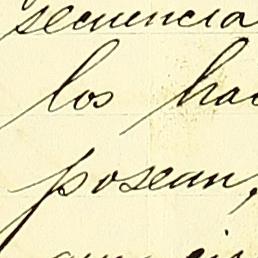 secuencia
los hac
posean,